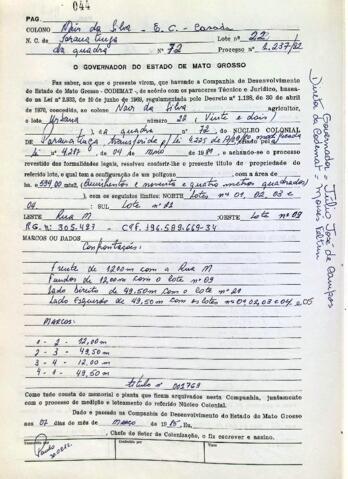 044
PAG.
COLONO Nair da Silva - E.C. - Casada
N. C. de Paranatinga Lote nº 22
da quadra nº 72 Processo nº 1.237/82
O GOVERNADOR DO ESTADO DE MATO GROSSO
Faz saber, aos que a presente virem, que havendo a Companhia de Desenvolvimento
do Estado de Mato Grosso - CODEMAT -, de acôrdo com os pareceres Técnico e Jurídico, basea-
da na Lei nº 2.833, de 10 de junho de 1969, regulamentada pelo Decreto nº 1.198, de 30 de abril
de 1970, concedido, ao colono Nair da Silva agricultor,
o lote Urbano número 22 (Vinte e dois)
da quadra nº 72, do NÚCLEO COLONIAL
DE Paranatinga, transf. de p/ lei 4.225 de modificada pela
lei nº 4.217 de 04 de Maio de 1980 e achando-se o processo
revestido das formalidades legais, resolve conferir-lhe o presente título de propriedade do
referido lote, o qual tem a configuração de um polígono com a área de
ha 594,00 m2 (Quinhentos e noventa e quatro metros quadrados)
), com os seguintes limites: NORTE Lotes nº 01, 02, 03 e
04. : SUL Lote nº 21
LESTE Rua M :OESTE Lote nº 09
R.G. nº 305.427 - CPF. 196.589.669-34
MARCOS OU DADOS
Confrontações:
Frente de 12,00m com a Rua M
Fundos de 12,00m com o lote nº 09
Lado Direito de 49,50m com o lote nº 21
Lado Esquerdo de 49,50m com os lotes nº 01, 02, 03 e 04. e 05
MARCOS:
1 - 2 - 12,00m
2 - 3 - 49,50m
3 - 4 - 12,00m
4 - 1 - 49,50m
título nº 001769
Como tudo consta do memorial e planta que ficam arquivados nesta Companhia, juntamente
com o processo de medição e loteamento do referido Núcleo Colonial.
Dado e passado na Companhia de Desenvolvimento do Estado de Mato Grosso
aos 07 dias do mês de março de 1985, Eu,
, Chefe do Setor de Colonização, o fiz escrever e assino.
Conferido por
Visto
Governador = Júlio José de Campos